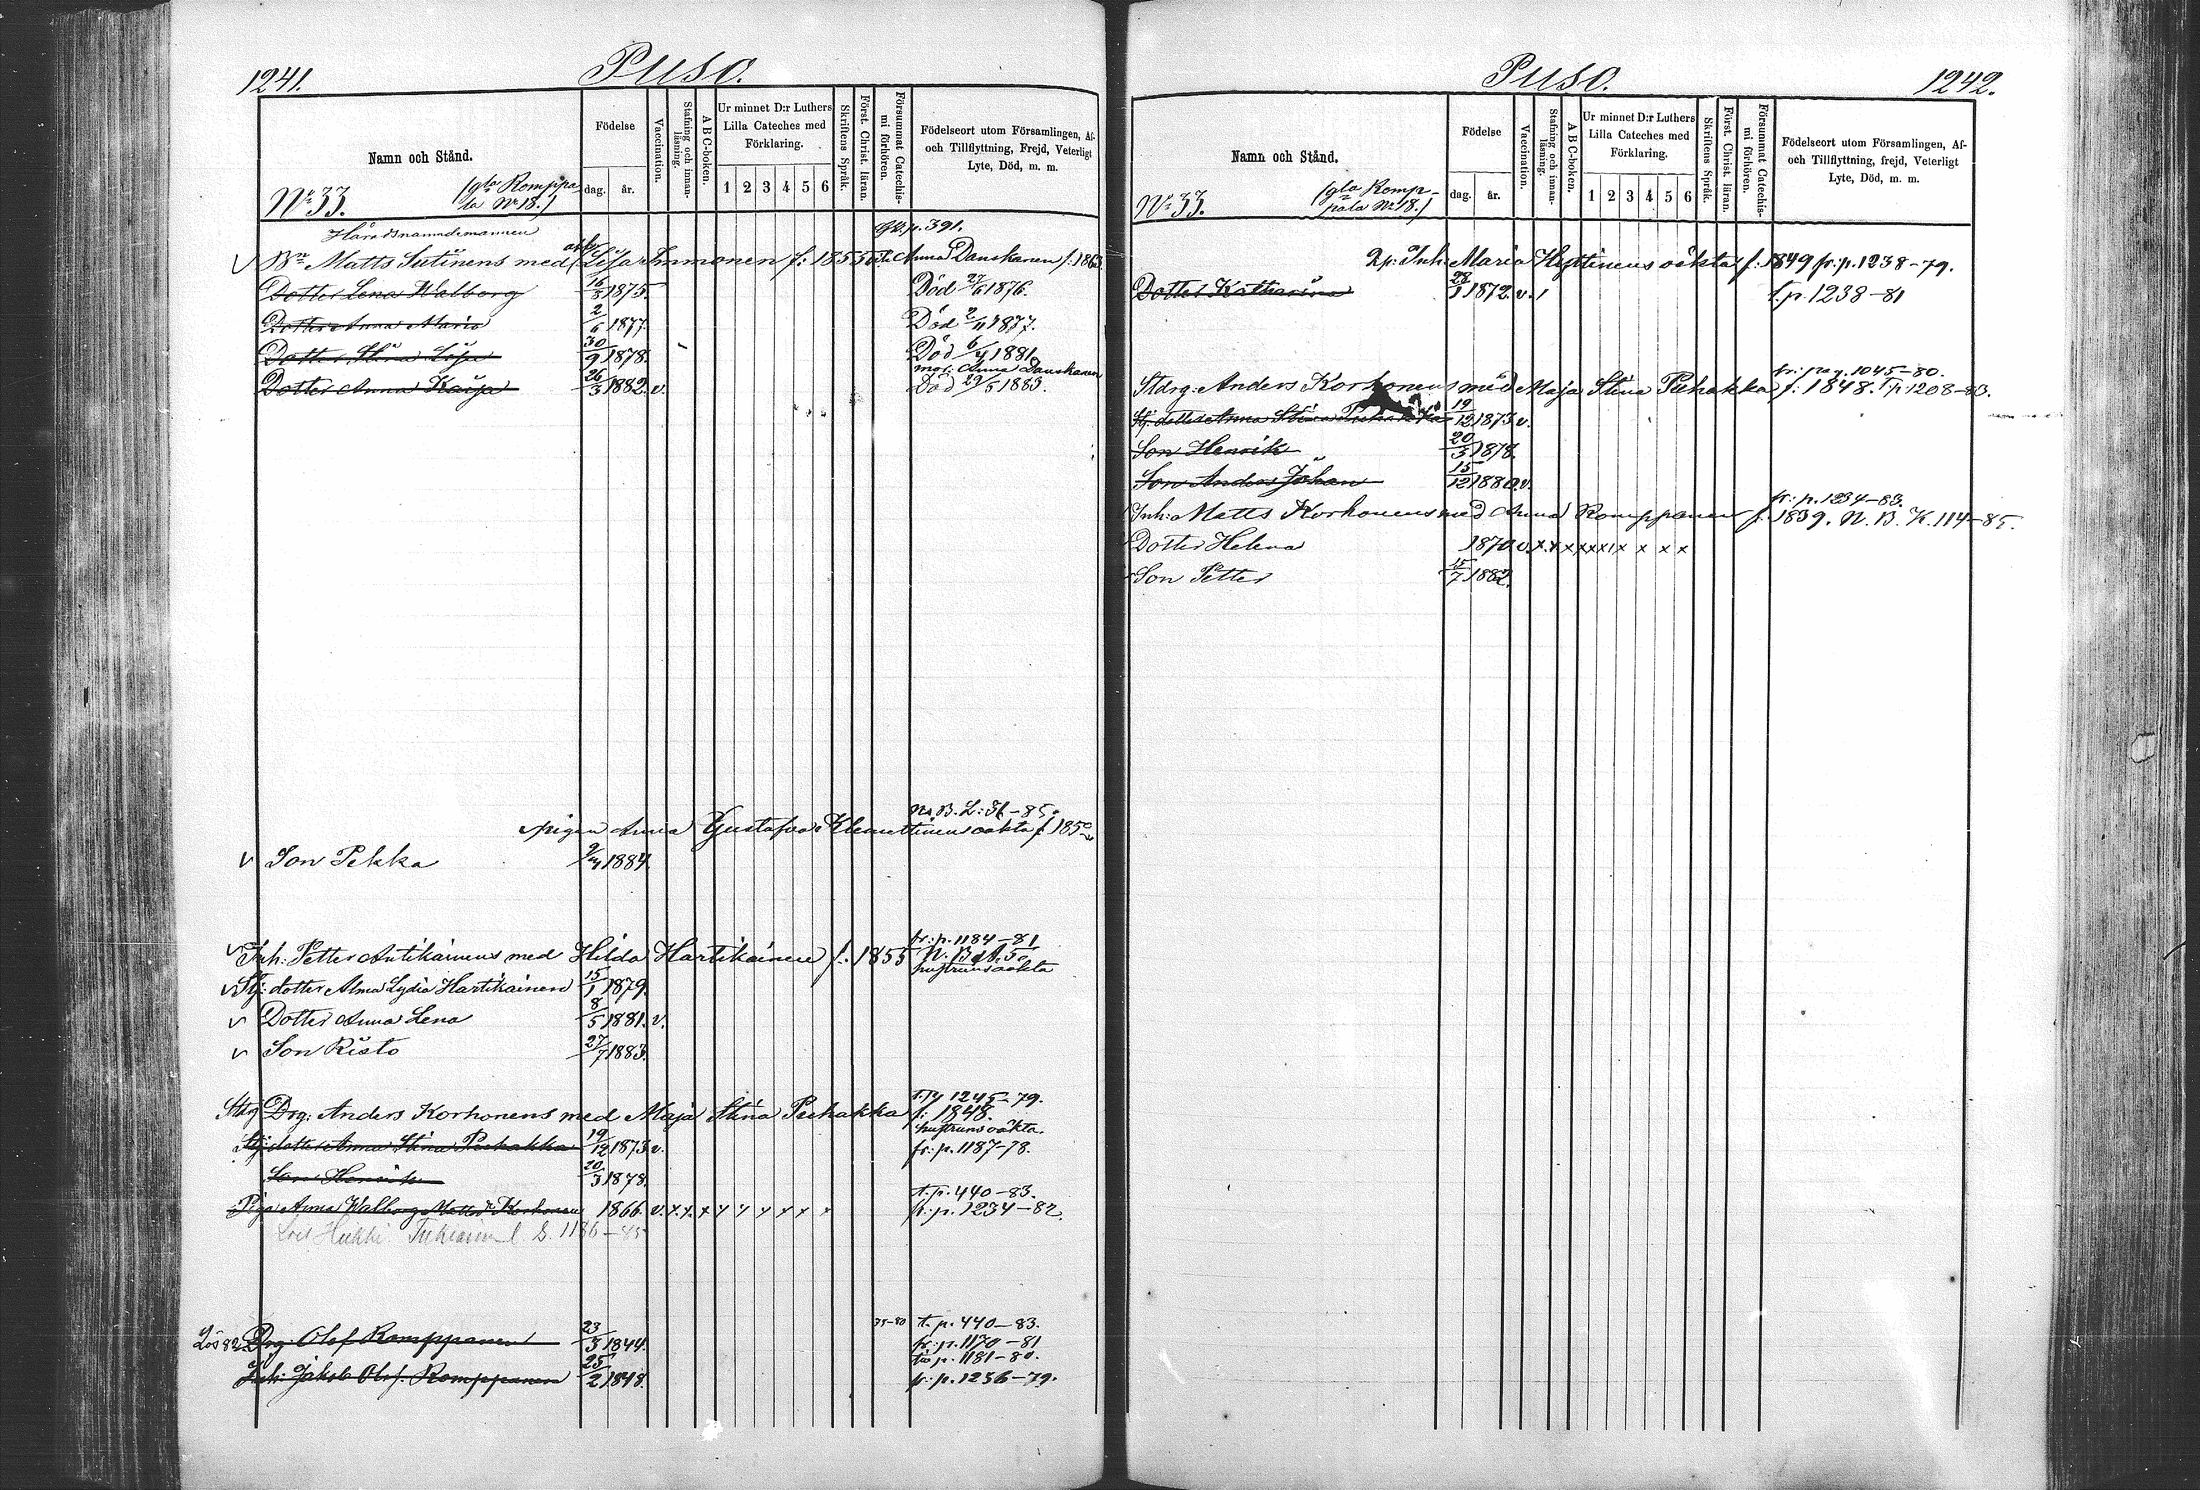 1241.
Puso.
Namn och Stånd.
Födelse
dag.
år.
Vaccination.
Stafning och innanläsning.
A B C-boken.
Ur minnet D:r Luthers
Lilla Cateches med
Förklaring.
1 2 3 4 5 6
Skriftens Språk.
Först. Christ. läran.
Försummat Catechismi förhören.
Födelseort utom Församlingen, Af-
och Tillflyttning, Frejd, Veterligt
Lyte, Död, m. m.
No 33.
(gla Romppa-
la No 18.)
Häradsnämndemannen p. 391.
Matts Sutinens med Lisa Immonen f: 1855 Anna Danskanen f. 1863
Dotter Lena Walborg 16/3 1875. Död 1876.
Dotter Anna Maria 2/6 1877. Död 2/11 1877.
Dotter Stina Lisa 30/9 1878. Död 6/4 1881.
mor: Anna Danskanen
Dotter Anna Kaisa 26/3 1882. v. Död 29/5 1883.
N. B. L: 36-85.
Pigan Anna Gustafva Klemettinens oäkta f. 1850
v Son Pekka 1884.
fr: p. 1184-81
v Inh: Petter Antikainens med Hilda Hartikainen f: 1855 N. B. A. 5.
hustruns oäkta
v Stj: dotter Alma Lydia Hartikainen 15/1 1879.
v Dotter Anna Lena 8/5 1881. v.
v Son Risto 27/7 1883.
1245-79.
Stdrg Drg: Anders Korhonens med Maja Stina Puhakka f: 1848.
hustruns oäkta.
Stj: dotter Anna Stina Puhakka 19/12 1873 v. fr: p. 1187-78.
Son Henrik 20/3 1878.
t. p. 440-83.
Piga Anna Walborg Mattsd: Korhonen 1866. v. x. x. x x x x x x x fr. p. 1234-82.
1186-85
79-80 t. p. 440-83.
Lös 82 Drg: Olof Romppanen 23/3 1844. fr: p. 1170-81
p. 1181-80.
Inh: Jakob Olof: Romppanen 25/2 1848. fr: p. 1256-79.
Puso.
1242.
Namn och Stånd.
Födelse
dag.
år.
Vaccination.
Stafning och innanläsning.
A B C-boken.
Ur minnet D:r Luthers
Lilla Cateches med
Förklaring.
1 2 3 4 5 6
Skriftens Språk.
Först. Christ. läran.
Försummat Catechismi förhören.
Födelseort utom Församlingen, Af-
och Tillflyttning, frejd, Veterligt
Lyte, Död, m. m.
No 33.
(gla Romp-
pala No 18.)
Inh: Maria Hyttinens oäkta f: 1849 fr: p. 1238-79.
Dotter Katharina 28/1 1872. v. / t. p. 1238-81
fr: pag. 1045-80.
Stdrg: Anders Korhonens med Maja Stina Puhakka f: 1848. T. p. 1208-83.
Stj: dotter Anna Stina Puhakka 19/12 1873 v.
Son Henrik 20/3 1878.
Son Anders Johan 15/12 1880. v.
fr: p. 1234-83.
Inh: Matts Korhonens med Anna Romppanen f. 1839. N. B. K. 114-85.
Dotter Helena 1870 v. x. x x x x x x x x x
Son Petter 15/7 1882.